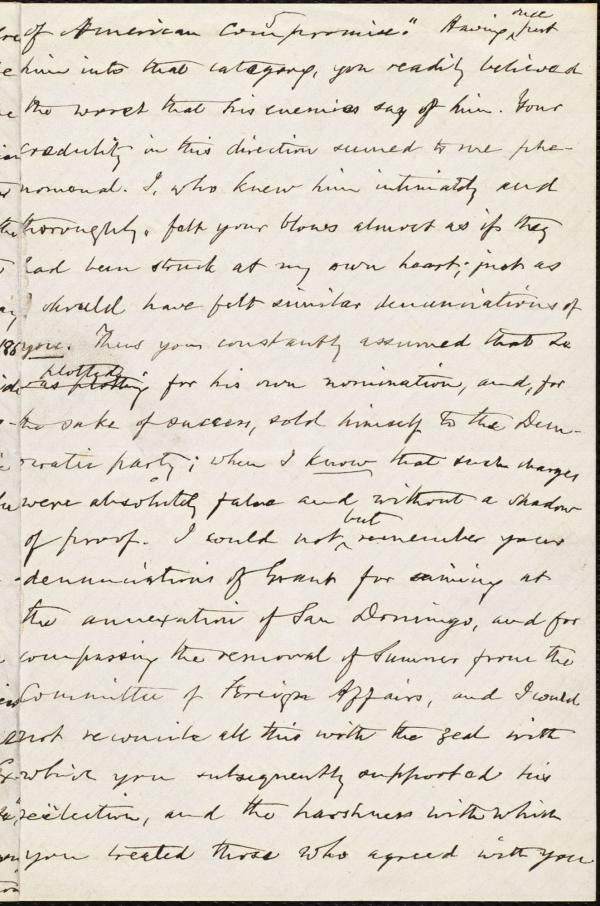 of American Compromise." Having once put
him into that category, you readily believed
the worst that his enemies say of him. Your
credulity in this direction seemed to me phe-
nomenal. I, who knew him intimately and
thoroughly, felt your blows almost as if they
had been struck at my own heart; just as
I should have felt similar denunciations of
you. Thus you constantly assumed that he
was plotting plotted for his own nomination, and, for
the sake of success, sold himself to the Dem-
ocratic party; when I know that such charges
were absolutely false and without a shadow
of proof. I could not but remember your
denunciations of Grant for aiming at
the annexation of San Domingo, and for
compassing the removal of Sumner from the
Committee of Foreign Affairs, and I could
not reconcile all this with the zeal with
which you subsequently supported his
reëlection, and the harshness with which
you treated those who agreed with you